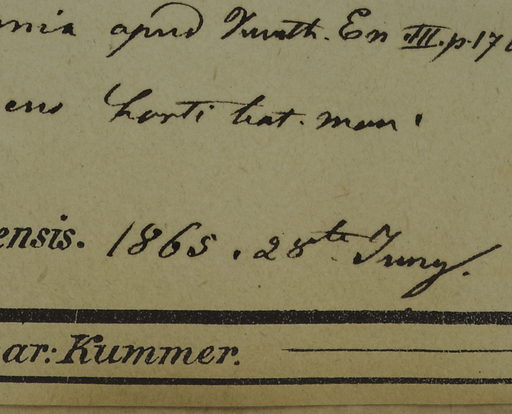 apud Kunth. En III. p. 17
horti bot. mon.
ensis. 1865. 28te Juny.
ar: Kummer.